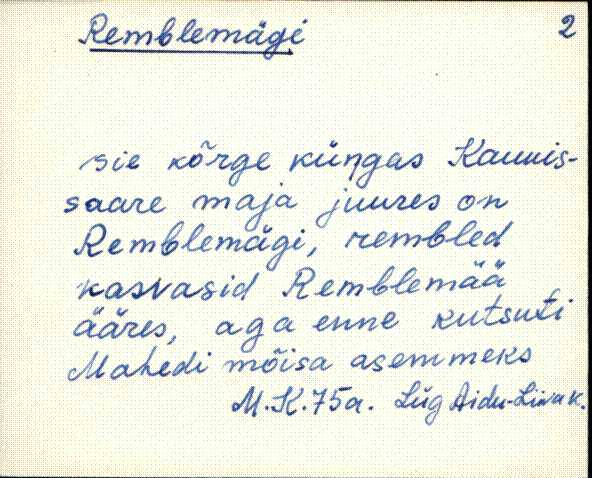 Remblemägi
2
sie kõrge küŋgas Kaunis-
saare maja juures on
Remblemägi, rembled
kasvasid Remblemää
ääres, aga enne kutsuti
Mahedi mõisa asemmeks
M.K. 75a. Lüg Aidu-Liiva k.